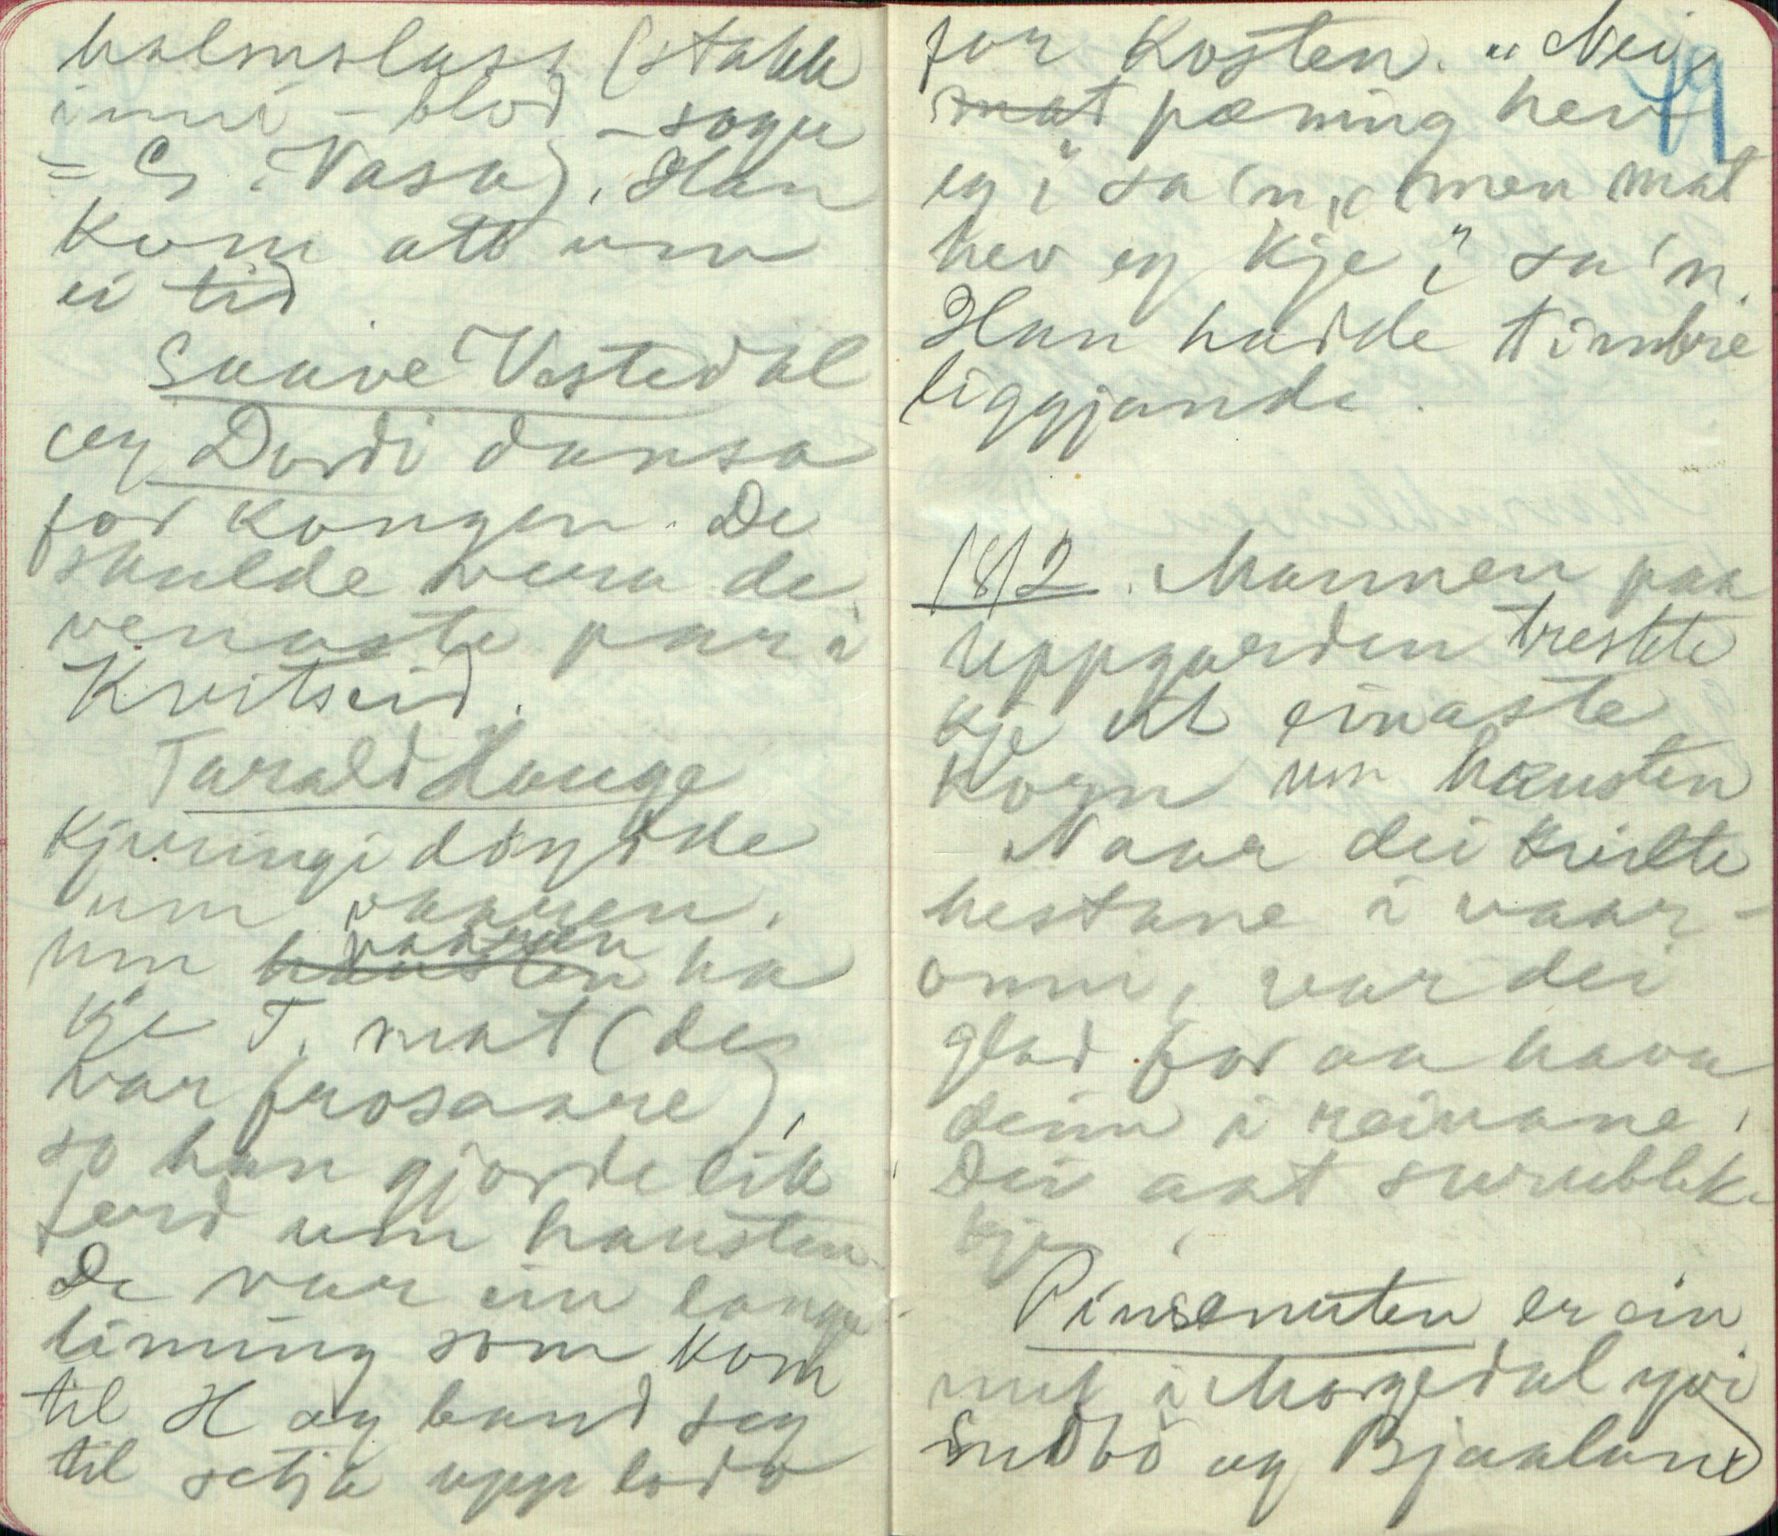 halmslass (stakk
inni – blod – sogu
= G. Vasa). Han
kom att um
ei tid
Saave Vestedal
og Dordi dansa
for kongen. De
skulde vera de
venaste par i
Kvitseid.
Tarald Hauge
Kjeringi döydde
um vaaren.
Um hausten vaaren ha
kje T. mat (de
var frosaare),
so han gjorde lik
ferd um hausten
De var ein lange
timing som kom
til H og baud seg
til setja upp lodo
for kosten. "Nei,
49
mat pæning hev
eg", sa 'n, "men mat
hev eg kje", sa 'n.
Han hadde timbre
liggjande.
1812. Mannen paa
Uppgarden treskte
kje eit einaste
korn um hausten
Naar dei kvilte
hestane i vaar-
onni, var dei
glad for aa hava
deim i reinane.
Dei aat surublekkje
kje
Pinsenuten er ein
nut i Morgedal yvi
Sudbö og Bjaaland